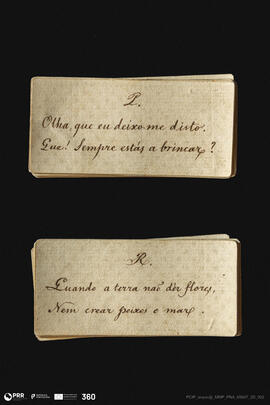 P.
Olha, que eu deixo-me disto.
Que! Sempre estás a brincar?
R.
Quando a terra não dér flores,
Nem crear peixes o mar.
PRR
360